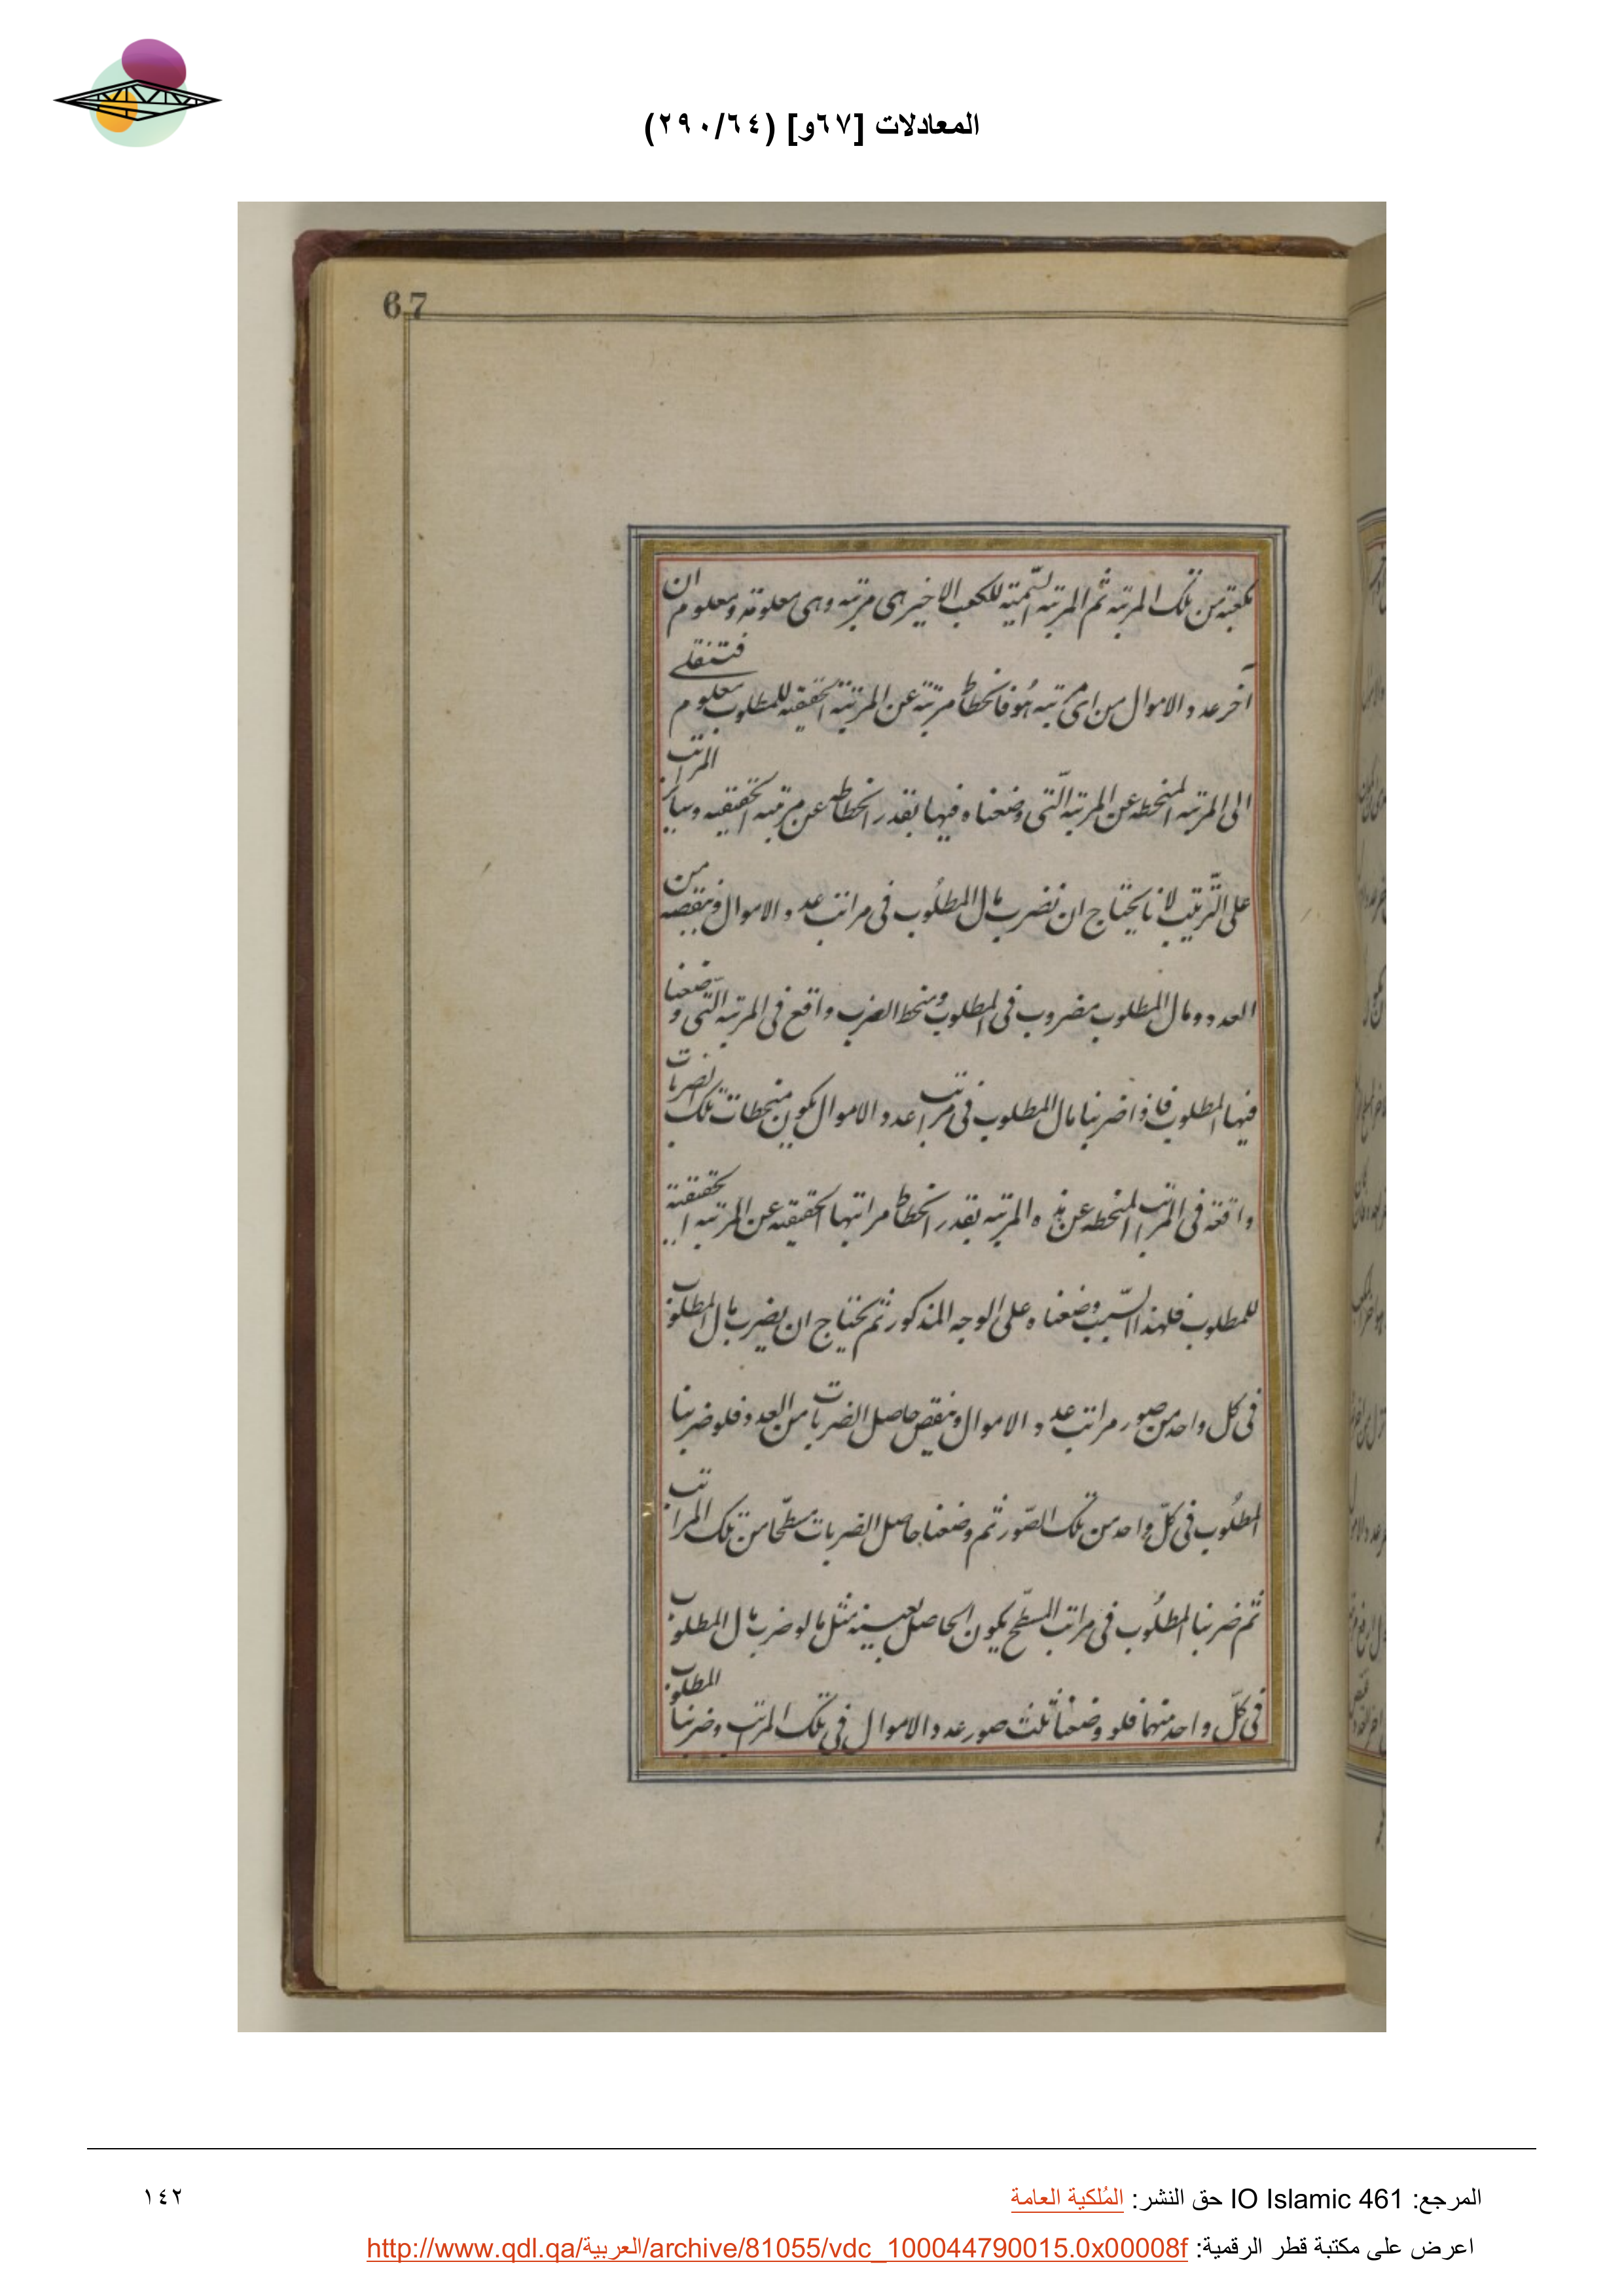 المعادلات [٦٧و] (٢٩٠/٦٤)
67
مكعبة من تلك المرتبه ثم المرتبه السمية للكعب الاخير هى مرتبه وهى معلومة ومعلوم ان
آخر عدد الاموال من اى مرتبه هو فانحطاط مرتبة عن المرتبة الحقيقيه للمطلوب معلوم فتنقله
الى المرتبه المنحطه عن المرتبه الّتى وضعناه فيها بقدر انحطاطه عن مرتبه الحقيقيه وساير المراتب
على التّرتيب لانا يحتاج ان نضرب مال المطلوب فى مراتب عدد الاموال وننقصه من
العدد ومال المطلوب مضروب فى المطلوب ومنحط الضرب واقع فى المرتبه التّى وضعنا
فيها المطلوب فاذا ضربنا مال المطلوب فى مراتب عدد الاموال يكون منحطات تلك الضربات
واقعة فى المراتب المنحطه عن هذه المرتبه بقدر انحطاط مراتبها الحقيقيه عن المرتبه الحقيقية
للمطلوب فلهذا السّبب وضعناه على الوجه المذكور ثم يحتاج ان يضرب مال المطلوب
فى كل واحد من صور مراتب عدد الاموال وينقص حاصل الضربات من العدد فلو ضربنا
المطلُوب فى كلّ واحد من تلك الصّور ثم وضعنا حاصل الضربات مسطّحا من تلك المراتب
ثم ضربنا المطلُوب فى مراتب المسطّح يكون الحاصل بعينه مثل ما لو ضرب مال المطلوب
فى كلّ واحد منها فلو وضعنا ثلث صور عدد الاموال فى تلك المراتب وضربنا المطلوب
المرجع: IO Islamic 461 حق النشر: المُلكية العامة
١٤٢
اعرض على مكتبة قطر الرقمية: http://www.qdl.qa/العربية/archive/81055/vdc_100044790015.0x00008f